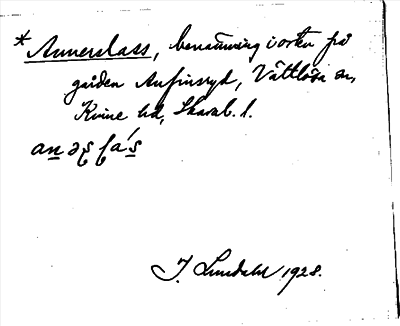 * Annersdass, benämning i orten på
gården Anfinsryd, Vättlösa sn,
Kinne hd, Skarab. l.
I. Lundahl 1928.